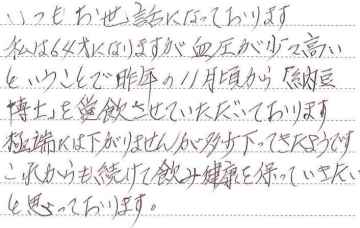 いつもお世話になっております
私は64才になりますが血圧が少々高い
ということで昨年の11月頃から「納豆
博士」を愛飲させていただいております
極端には下がりませんが多少下ってきたようです
これからも続けて飲み健康を保っていきたい
と思っております。